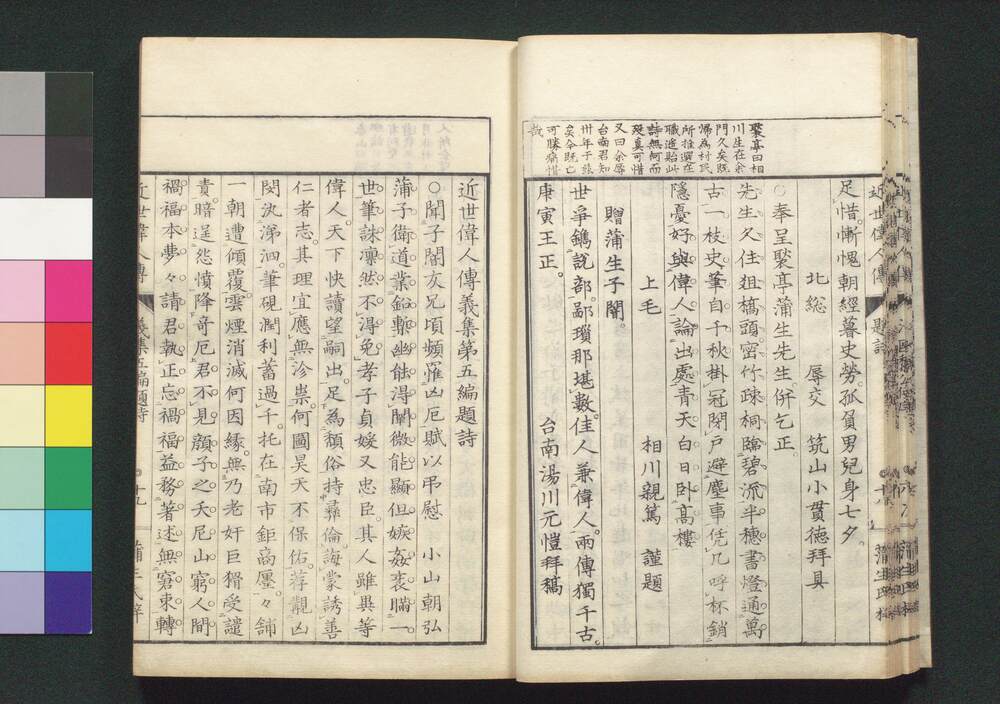 近世偉人傳
題詩
聚亭曰相
川生在余
門久矣既
帰為村民
所推選在
職進貽此
詩無何而
歿真可惜
又曰余辱
台南君知
卅年于茲
矣今既亡
可勝痛惜
哉
足惜。慚愧朝經暮史勞。孤負男兒身七夕。
北総　辱交　筑山小貫德拜具
○奉呈聚亭蒲生先生。併乞正。
先生久住俎橋頭。密竹疎桐臨碧流。半穗書燈通萬
古。一枝史筆自千秋。掛冠閉戶避塵事。凭几呼杯銷
隱憂。好與偉人論出處。青天白日臥高樓
上毛　相川親篤　謹題
贈蒲生子闇。
世爭鐫說部。鄙瑣那堪數。佳人兼偉人。兩傳獨千古。
庚寅王正。　台南湯川元愷拜稿
近世偉人傳義集第五編題詩
○聞子闇友兄頃頻罹凶厄賦以弔慰　小山朝弘
蒲子衛道業鉛槧。幽能得闡微能顯。但嫉姦衺瞞一
世。筆誅凛然不得免。孝子貞媛又忠臣。其人雖異等
偉人。天下快讀望嗣出。足為頽俗持彝倫。誨蒙誘善
仁者志。其理宜應無沴祟。何圖昊天不保佑。荐覯凶
閔汍涕泗。筆硯潤利蓄過千。托在南市鉅商廛。々舖
一朝遭傾覆。雲煙消滅何因緣。無乃老奸巨猾受譴
責。暗逞怨憤降奇厄。君不見顏子之夭尼山窮。人間
禍福本夢々。請君執正忘禍福。益務著述無窘束。轉
近世偉人傳
義集五編題詩
十九
蒲生氏梓